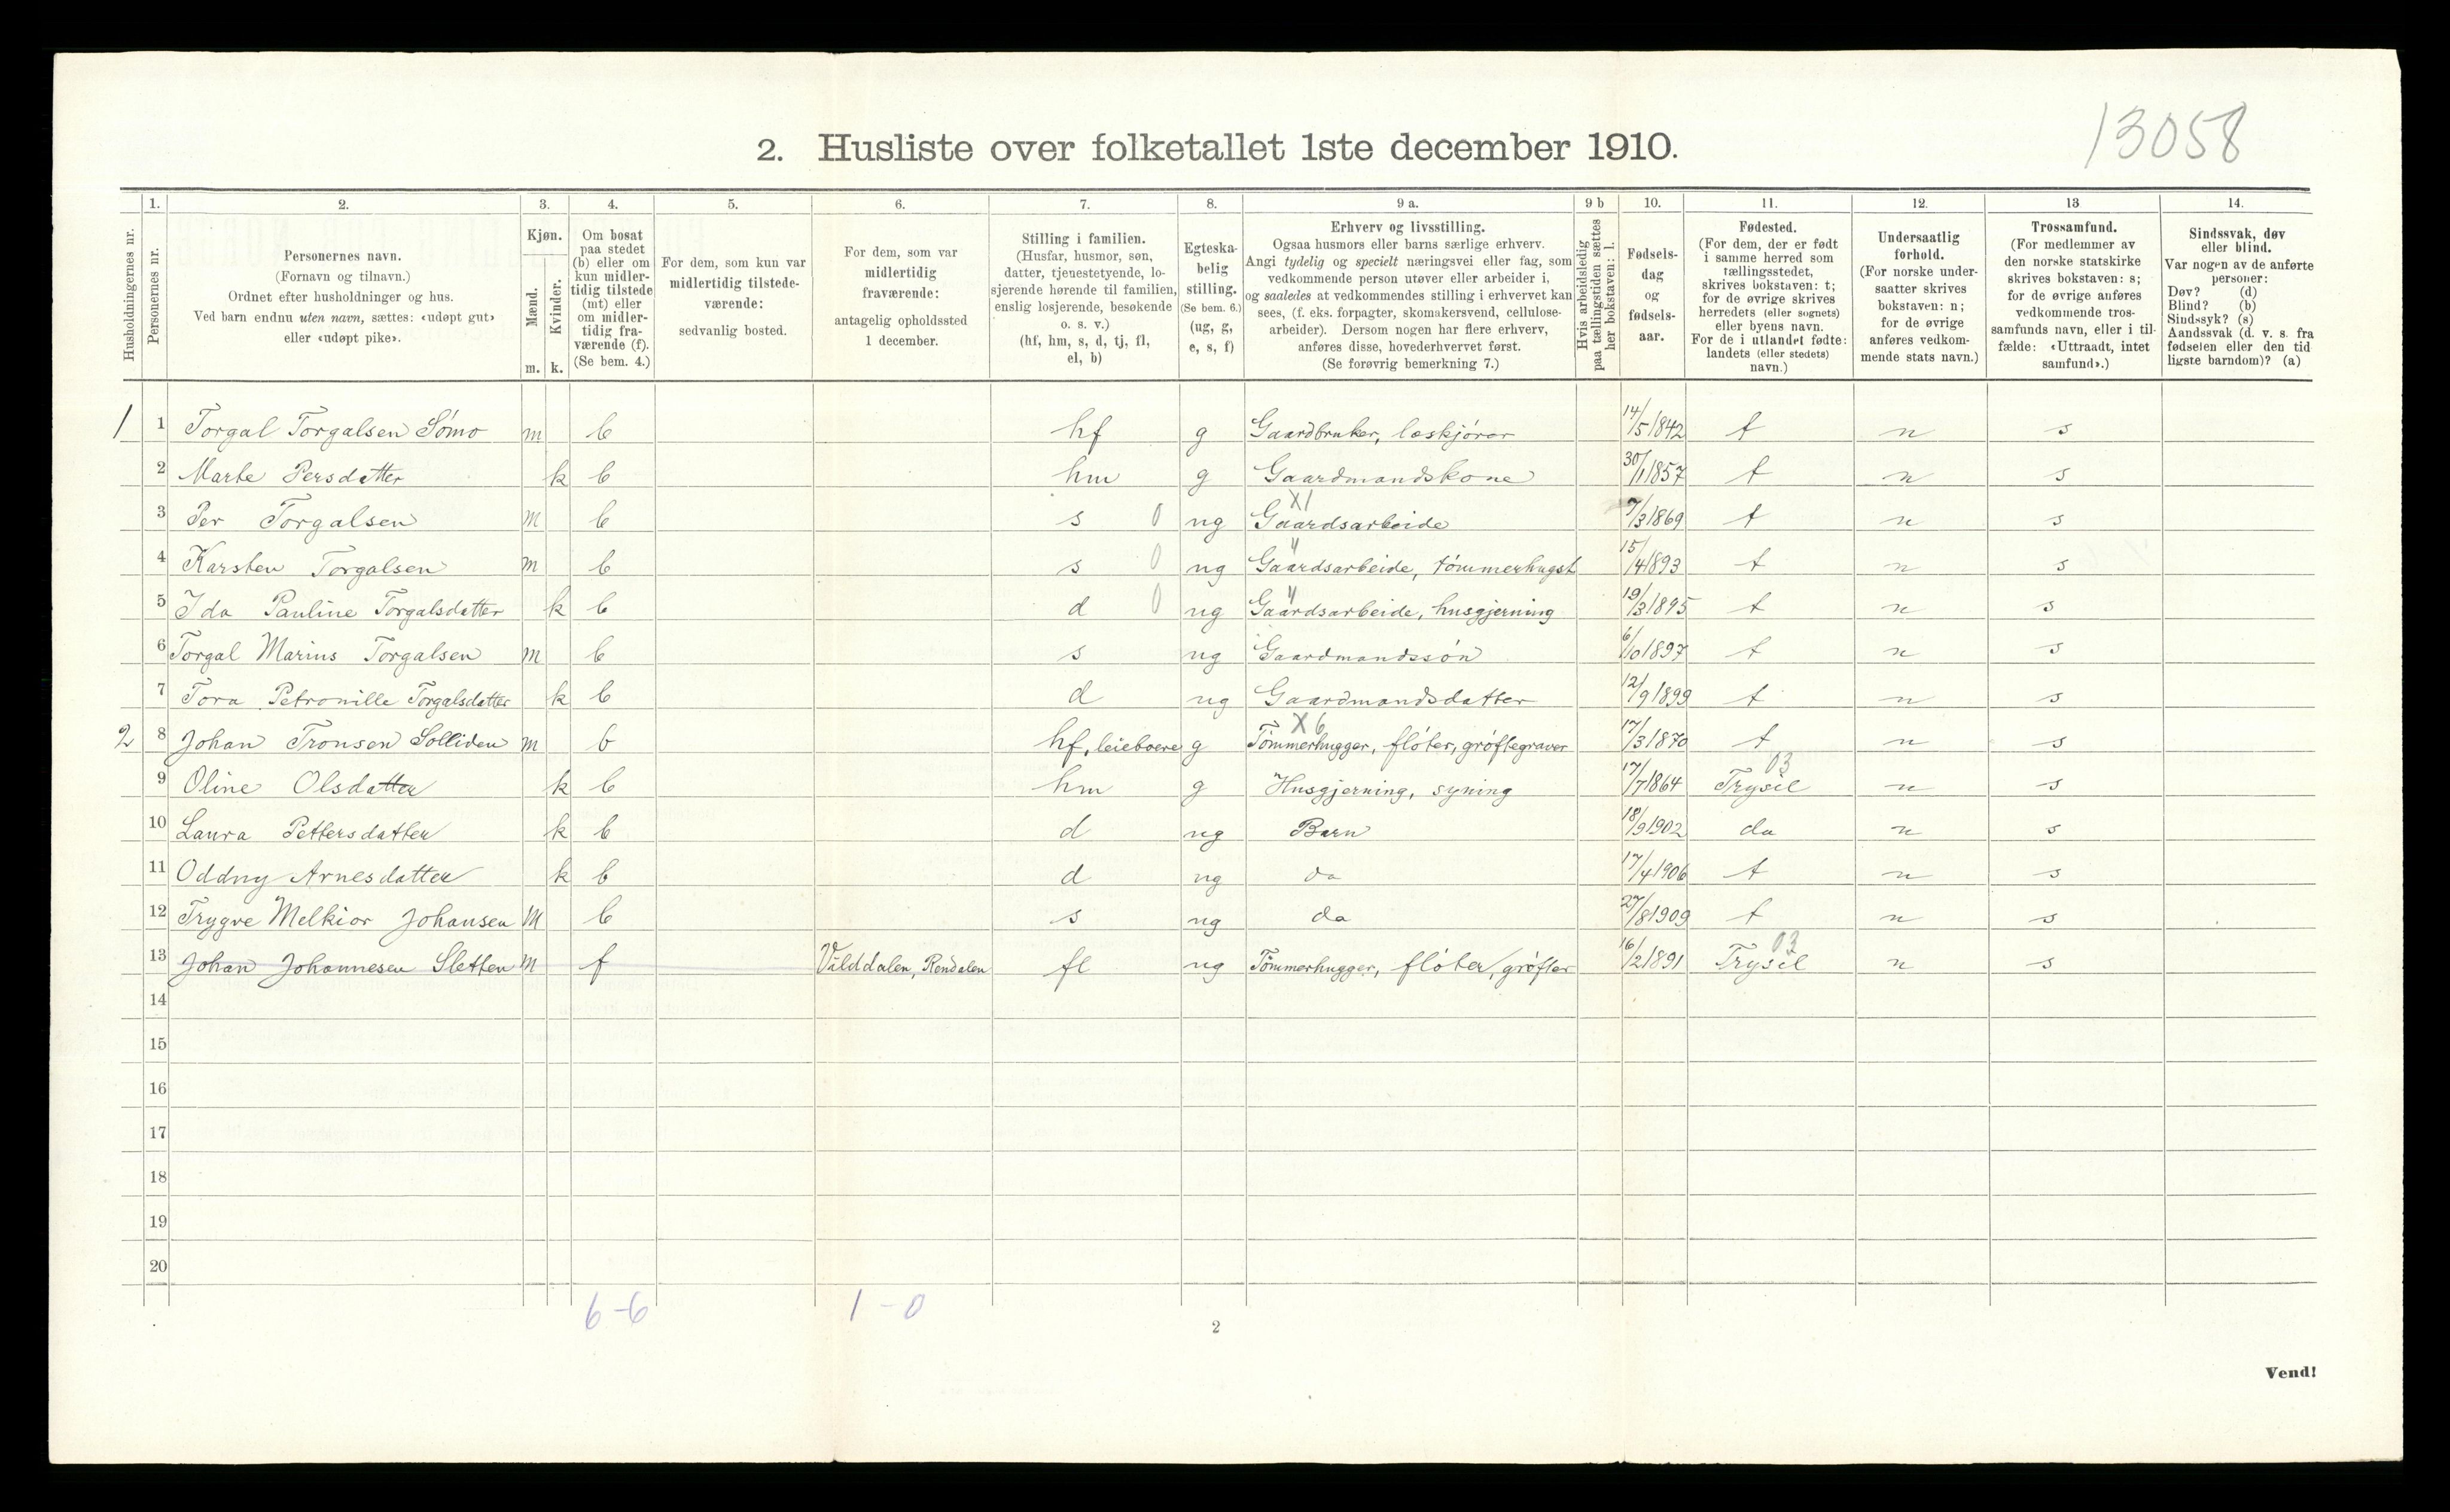 13058
2. Husliste over folketallet 1ste december 1910.
1. 2. 3. 4. 5. 6. 7. 8. 9 a. 9 b 10. 11. 12. 13 14.
Husholdningernes nr.
Personernes nr.
Personernes navn.
(Fornavn og tilnavn.)
Ordnet efter husholdninger og hus.
Ved barn endnu uten navn, sættes: «udøpt gut»
eller «udøpt pike».
Kjøn.
Mænd.
Kvinder.
m. k.
Om bosat
paa stedet
(b) eller om
kun midler-
tidig tilstede
(mt) eller
om midler-
tidig fra-
værende (f).
(Se bem. 4.)
For dem, som kun var
midlertidig tilstede-
værende:
sedvanlig bosted.
For dem, som var
midlertidig
fraværende:
antagelig opholdssted
1 december.
Stilling i familien.
(Husfar, husmor, søn,
datter, tjenestetyende, lo-
sjerende hørende til familien,
enslig losjerende, besøkende
o. s. v.)
(hf, hm, s, d, tj, fl,
el, b)
Egteska-
belig
stilling.
(Se bem. 6.)
(ug, g,
e, s, f)
Erhverv og livsstilling.
Ogsaa husmors eller barns særlige erhverv.
Angi tydelig og specielt næringsvei eller fag, som
vedkommende person utøver eller arbeider i,
og saaledes at vedkommendes stilling i erhvervet kan
sees, (f. eks. forpagter, skomakersvend, cellulose-
arbeider). Dersom nogen har flere erhverv,
anføres disse, hovederhvervet først.
(Se forøvrig bemerkning 7.)
Hvis arbeidsledig
paa tællingstiden sættes
her bokstaven: l.
Fødsels-
dag
og
fødsels-
aar.
Fødested.
(For dem, der er født
i samme herred som
tællingsstedet,
skrives bokstaven: t;
for de øvrige skrives
herredets (eller sognets)
eller byens navn.
For de i utlandet fødte:
landets (eller stedets)
navn.)
Undersaatlig
forhold.
(For norske under-
saatter skrives
bokstaven: n;
for de øvrige
anføres vedkom-
mende stats navn.)
Trossamfund.
(For medlemmer av
den norske statskirke
skrives bokstaven: s;
for de øvrige anføres
vedkommende tros-
samfunds navn, eller i til-
fælde: «Uttraadt, intet
samfund».)
Sindssvak, døv
eller blind.
Var nogen av de anførte
personer:
Døv? (d)
Blind? (b)
Sindssyk? (s)
Aandssvak (d. v. s. fra
fødselen eller den tid-
ligste barndom)? (a)
1 1 Torgal Torgalsen Sömo m b hf g Gaardbruker, læskjörer 14/5 1842 t n s
2 Marte Persdatter k b hm g Gaardmandskone 30/1 1857 t n s
X1
3 Per Torgalsen m b s 0 ug Gaardsarbeide 7/3 1869 t n s
"
4 Karsten Torgalsen m b s 0 ug Gaardsarbeide, tömmerhugst 15/4 1893 t n s
"
5 Ida Pauline Torgalsdatter k b d 0 ug Gaardsarbeide, husgjerning 19/3 1895 t n s
6 Torgal Marius Torgalsen m b s ug Gaardmandssön 6/10 1897 t n s
7 Tora Petronille Torgalsdatter k b d ug Gaardmandsdatter 12/9 1899 t n s
X6
2 8 Johan Tronsen Solliden m b hf, leieboere g Tömmerhugger, flöter, gröftegraver 17/3 1870 t n s
03
9 Oline Olsdatter k b hm g Husgjerning, syning 17/7 1864 Trysil n s
10 Laura Pettersdatter k b d ug Barn 18/9 1902 da n s
11 Oddny Arnesdatter k b d ug da 17/4 1906 t n s
12 Trygve Melkior Johansen M b s ug da 27/8 1909 t n s
03
13 Johan Johannesen Sletten M f Vilddalen, Rendalen fl ug Tömmerhugger, flöter, gröfter 16/2 1891 Trysil n s
14
15
16
17
18
19
20
6-6 1-0
2
Vend!